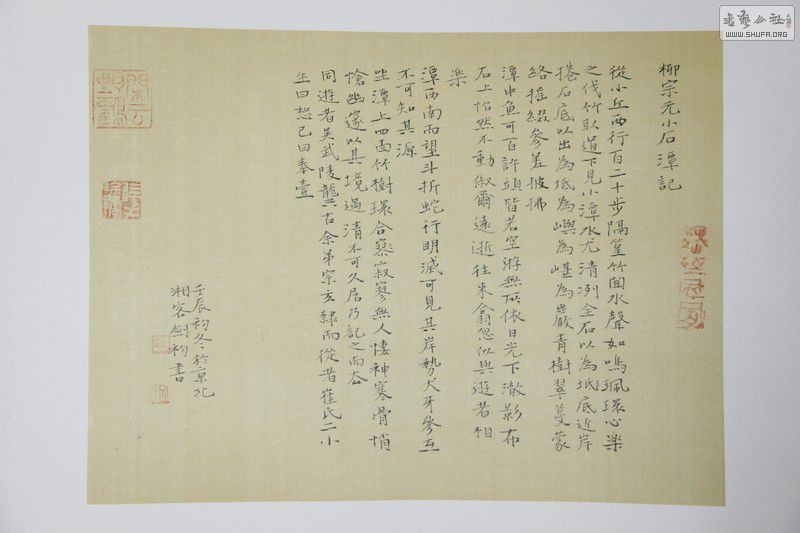 柳宗元小石潭記
從小丘西行百二十步隔篁竹聞水聲如鳴珮環心樂
之伐竹取道下見小潭水尤清洌全石以為坻底近岸
捲石底以出為坻為嶼為嵁為巖青樹翠蔓蒙
絡搖綴參差披拂
潭中魚可百許頭皆若空游無所依日光下澈影布
石上怡然不動俶爾遠逝往來翕忽似與遊者相
樂
潭西南而望斗折蛇行明滅可見其岸勢犬牙參互
不可知其源
坐潭上四面竹樹環合寂寥無人悽神寒骨悄
愴幽邃以其境過清不可久居乃記之而去
同遊者吳武陵龔古余弟宗玄隸而從者崔氏二小
生曰恕己曰奉壹
壬辰初冬於京北
湘客劍初書
書藝公社
WWW.SHUFA.ORG